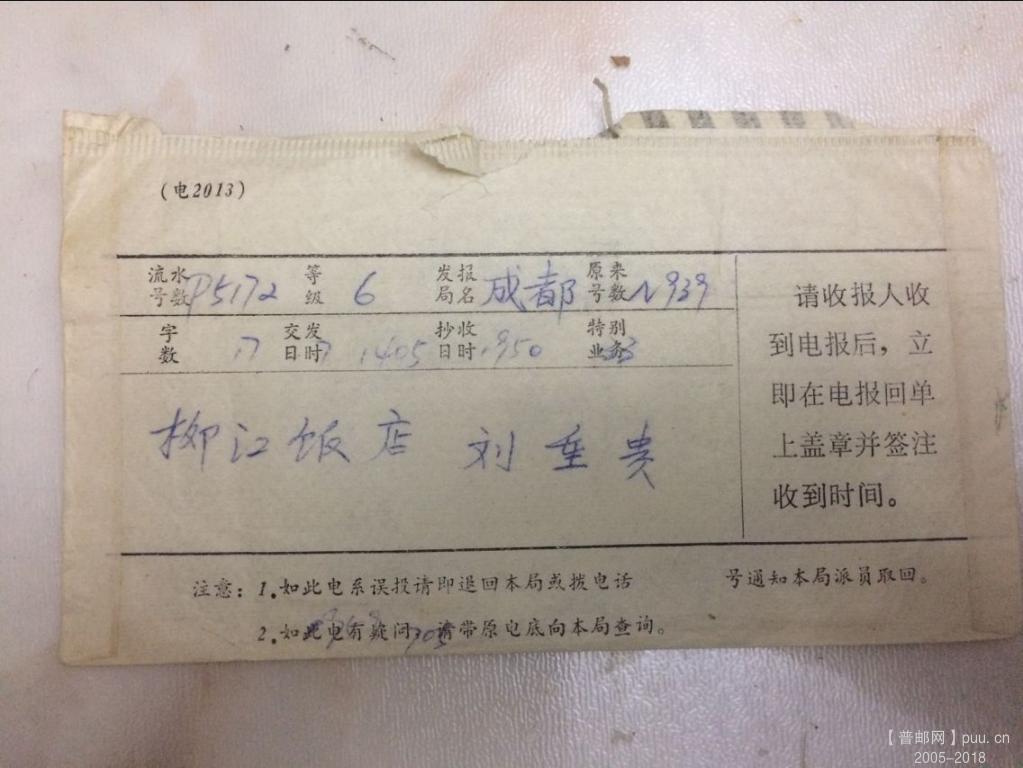 (电2013)
流水号数 P5172 等级 6 发报局名 成都 原来号数 N939
字数 17 交发日时 1405 抄收日时 1950 特别业务
柳江饭店 刘垂贵
请收报人收
到电报后，立
即在电报回单
上盖章并签注
收到时间。
注意：1.如此电系误投请即退回本局或拨电话 号通知本局派员取回。
2.如此电有疑问，请带原电底向本局查询。
【普邮网】puu.cn
2005-2018